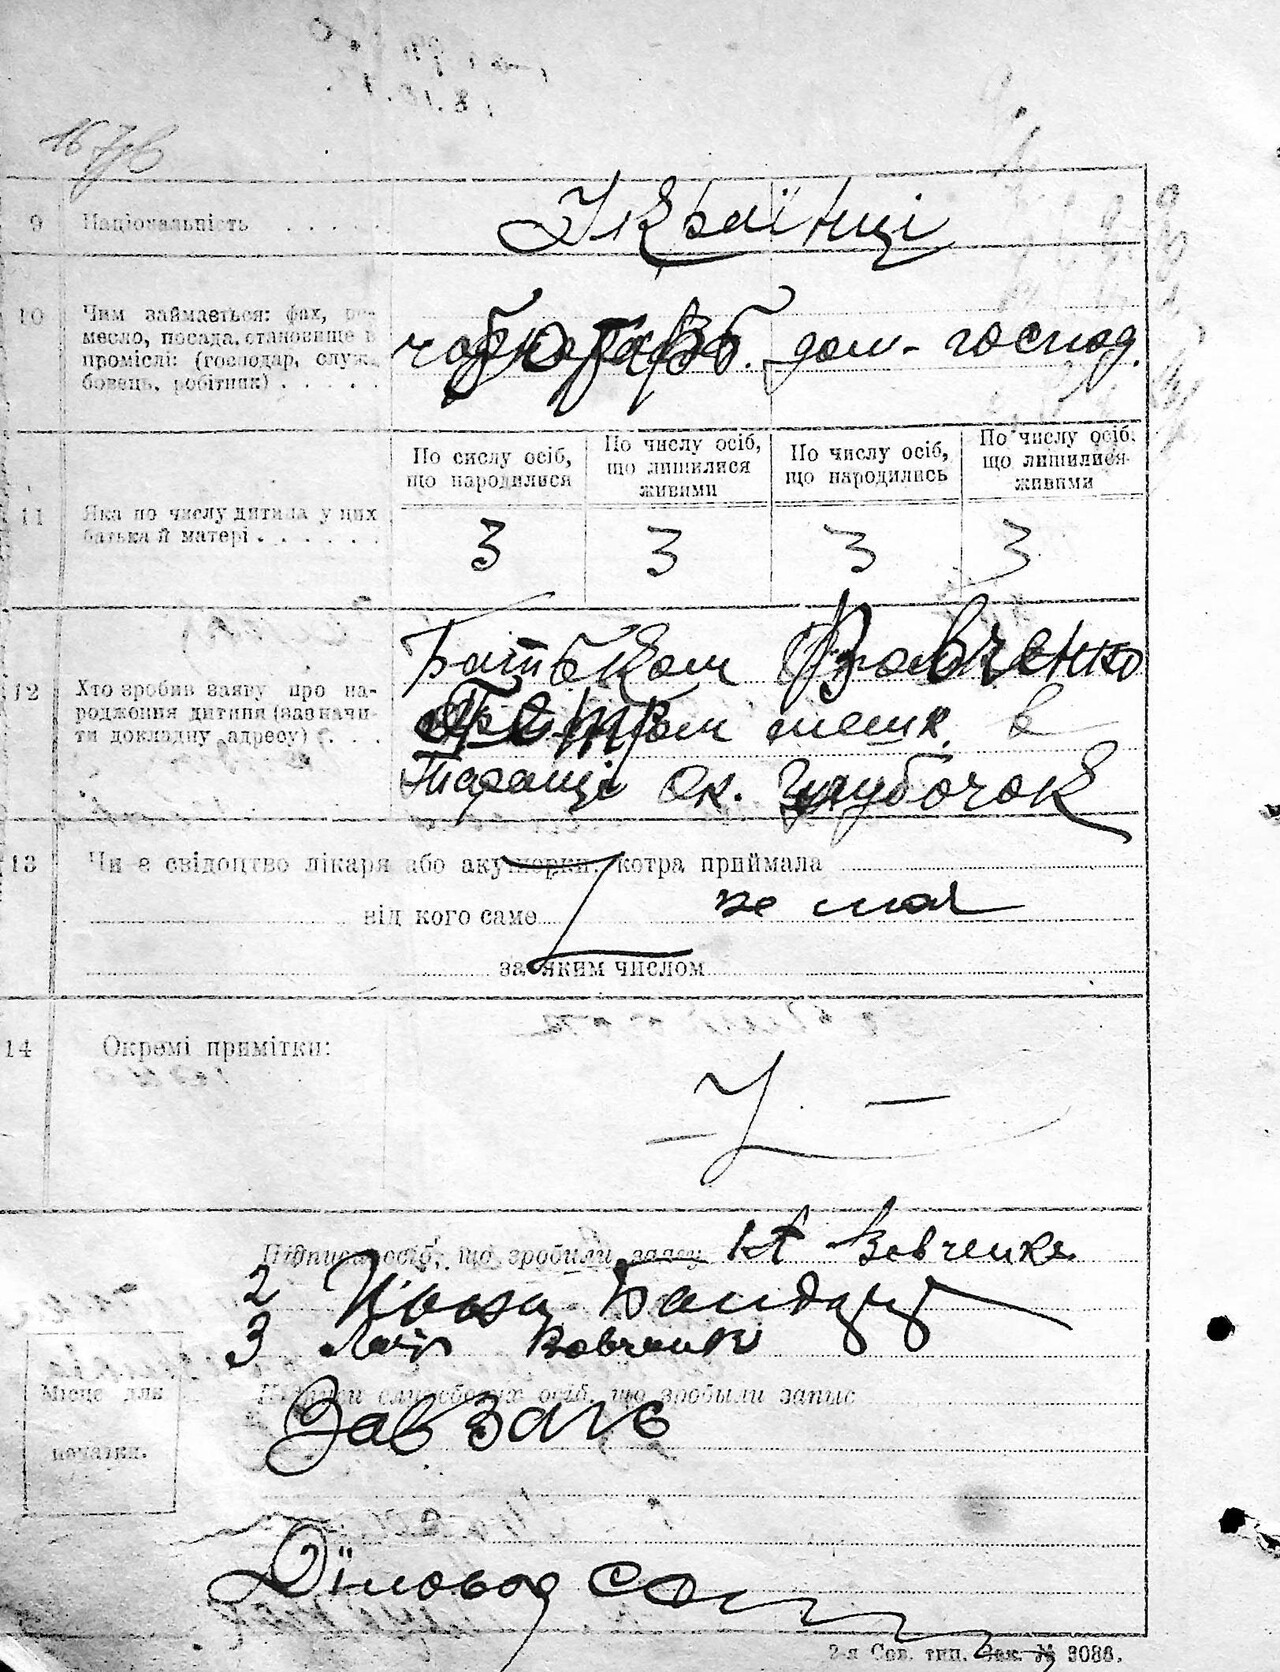 167/в
9 Національність . . . . . Українці
10 Чим займається: фах, ре-
месло, посада, становище в
промислі: (господар, служ.
бовець, робітник) . . . . .
дом-господ.
По сислу осіб,
що народилися
По числу осіб,
що лишилися
живими
По числу осіб,
що народились
По числу осіб,
що лишилися
живими
11 Яка по числу дитина у цих
батька й матері . . . . . .
3 3 3 3
12 Хто зробив заяву про на-
родження дитини (зазначи-
ти докладну адресу) . . . .
Батьком Вовченко
Петром меш. в
Таращі ок. Глубочок
13 Чи є свідоцтво лікаря або акушерки, котра приймала
від кого саме не має
за яким числом
14 Окремі примітки:
Підписи осіб, що зробили заяву Вовченко
2
3 Вовченко
Місце для
печатки.
Підписи службових осіб, що зробыли запис
Зав Загс
Діловод
2-я Сов. тип. Зак. № 3086.